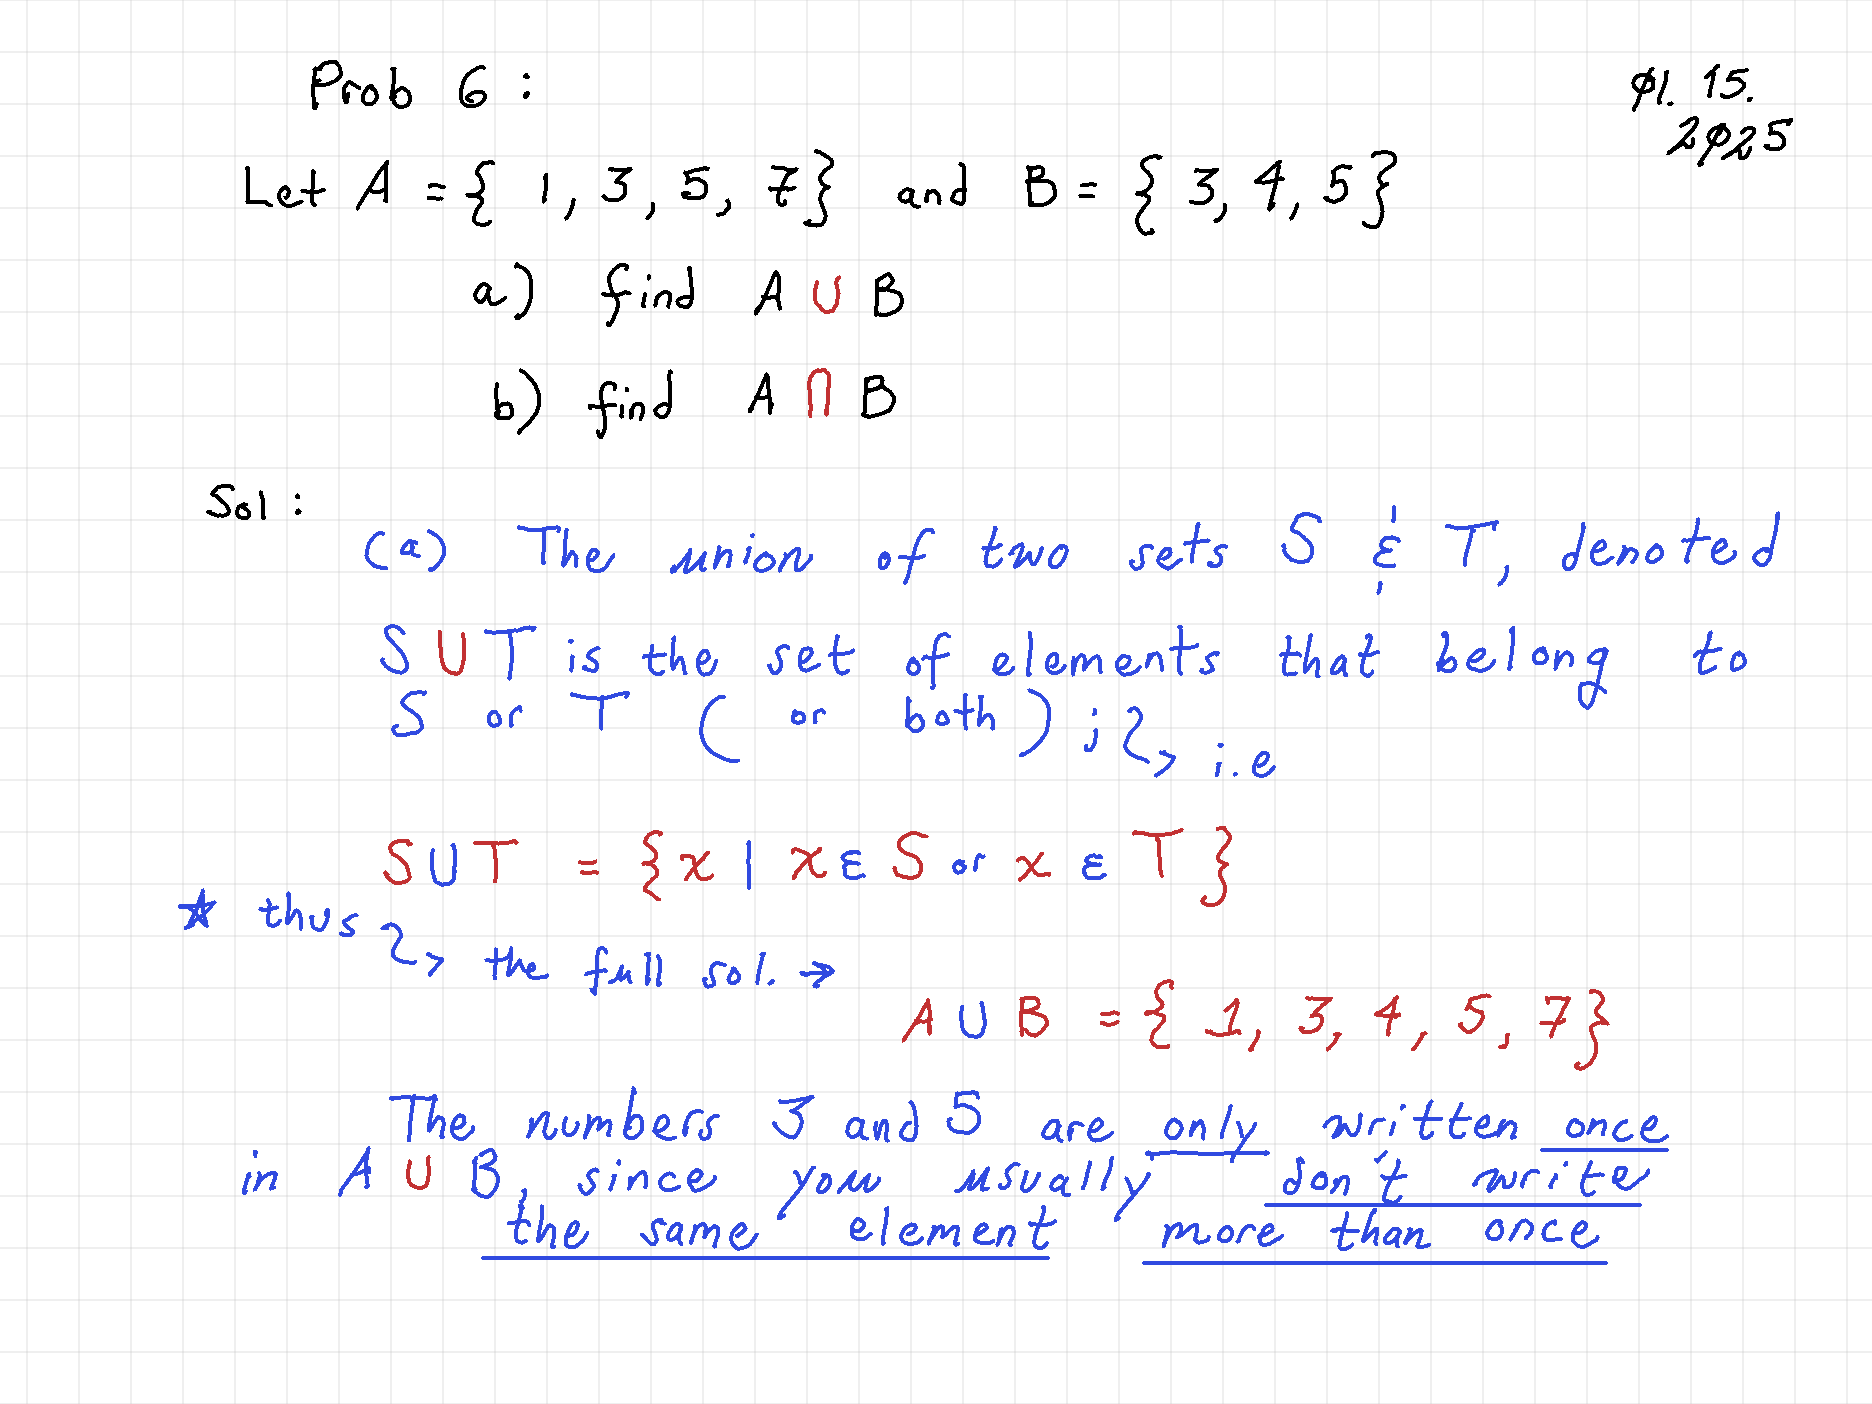 Prob 6 :
Ø1. 15.
2Ø25
Let A = { 1, 3, 5, 7} and B = { 3, 4, 5}
a) find A ∪ B
b) find A ∩ B
Sol :
(a) The union of two sets S & T, denoted
S ∪ T is the set of elements that belong to
S or T ( or both ) ; ↳ i.e
S ∪ T = {x | x ∈ S or x ∈ T }
☆ thus ↳ the full sol. →
A ∪ B = { 1, 3, 4, 5, 7}
The numbers 3 and 5 are only written once
in A ∪ B, since you usually don't write
the same element more than once